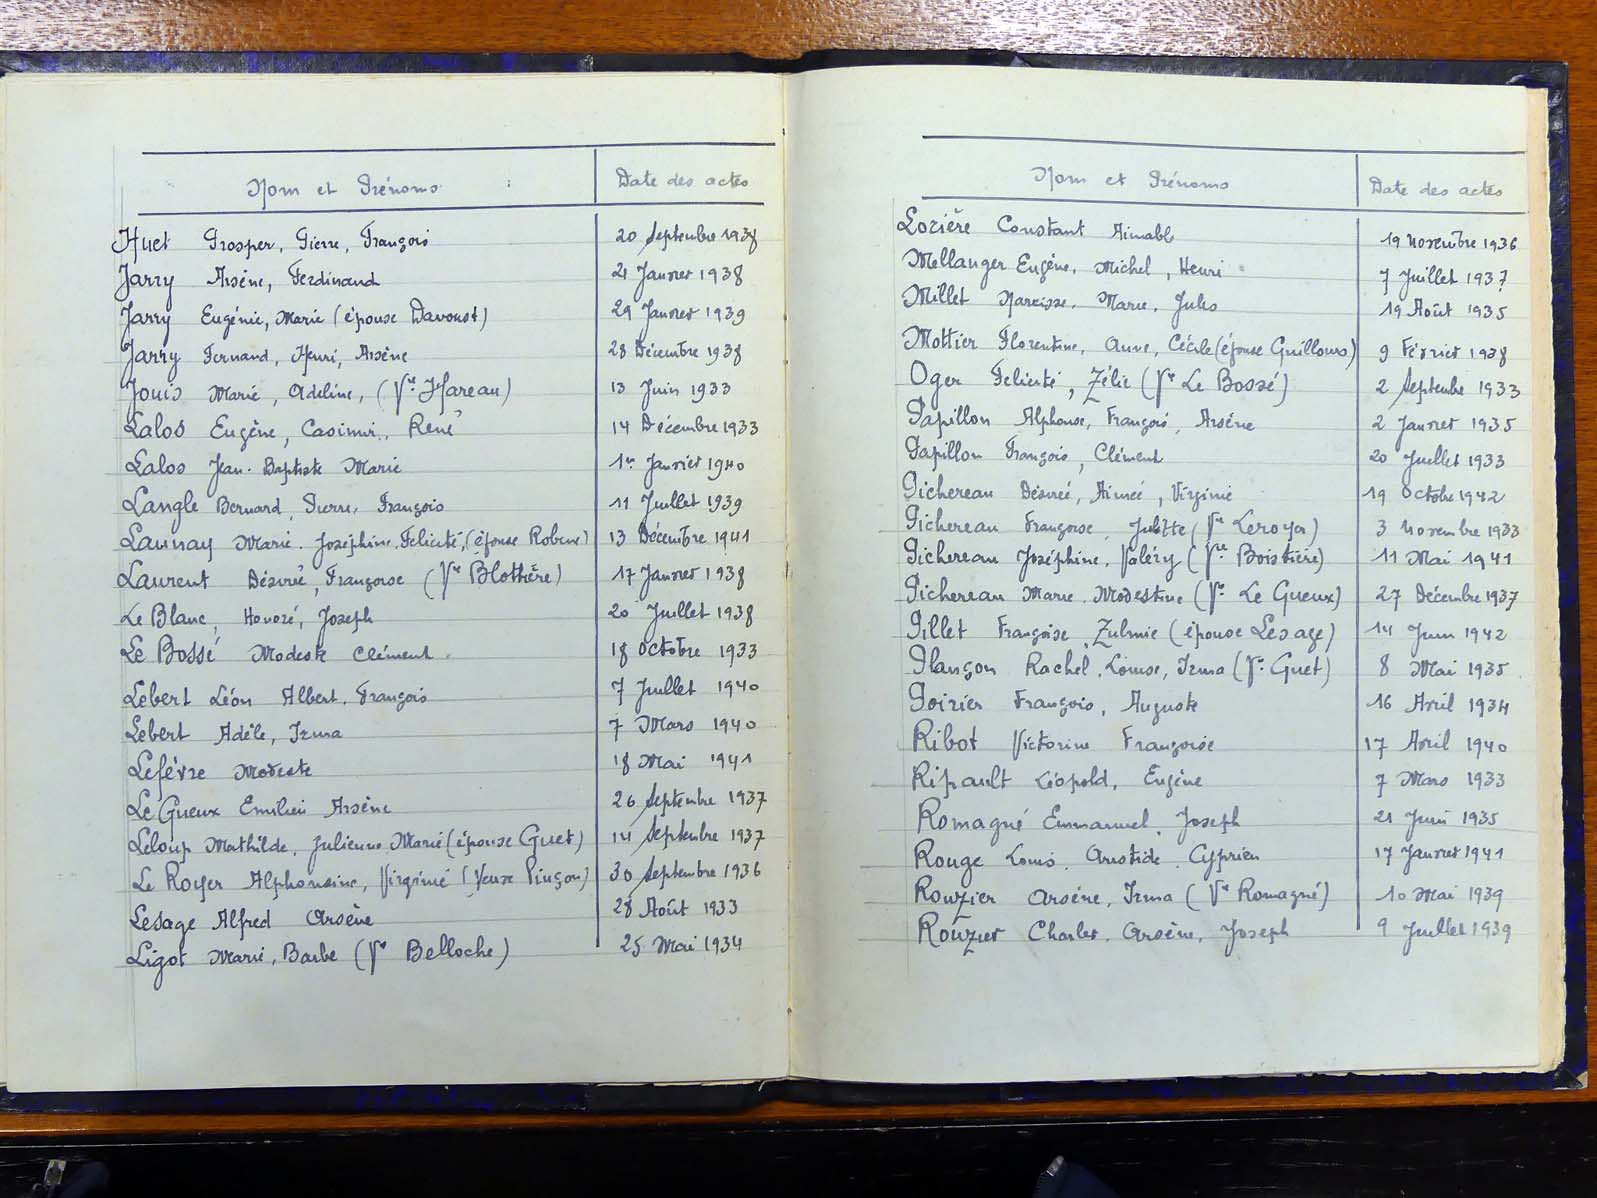 Nom et Prénoms Date des actes
Huet Prosper, Pierre, François 20 Septembre 1938
Jarry Arsène, Ferdinand 21 Janvier 1938
Jarry Eugénie, Marie (épouse Davoust) 29 Janvier 1939
Jarry Fernand, Henri, Arsène 28 Décembre 1938
Jouis Marie, Adeline, (Vve Hareau) 13 Juin 1933
Lalos Eugène, Casimir, René 14 Décembre 1933
Lalos Jean-Baptiste Marie 1er Janvier 1940
Langle Bernard, Pierre, François 11 Juillet 1939
Launay Marie, Joséphine, Félicité, (épouse Robine) 13 Décembre 1941
Laurent Désirée, Françoise (Vve Blottière) 17 Janvier 1938
Le Blanc, Honoré, Joseph 20 Juillet 1938
Le Bossé Modeste Clément 18 Octobre 1933
Lebert Léon Albert, François 7 Juillet 1940
Lebert Adèle, Irma 7 Mars 1940
Lefèvre Modeste 18 Mai 1941
Le Gueux Emilien Arsène 26 Septembre 1937
Leloup Mathilde, Julienne, Marie (épouse Guet) 14 Septembre 1937
Le Royer Alphonsine, Virginie (Veuve Pinçon) 30 Septembre 1936
Lesage Alfred Arsène 28 Août 1933
Ligot Marie, Barbe (Vve Belloche) 25 Mai 1934
Nom et Prénoms Date des actes
Lorière Constant Aimable 19 Novembre 1936
Mellanger Eugène, Michel, Henri 7 Juillet 1937
Millet Narcisse, Marie, Jules 19 Août 1935
Mottier Florentine, Anne, Cécile (épouse Guilloux) 9 Février 1938
Oger Félicité, Zélie (Vve Le Bossé) 2 Septembre 1933
Papillon Alphonse, François, Arsène 2 Janvier 1935
Papillon François, Clément 20 Juillet 1933
Pichereau Désirée, Aimée, Virginie 19 Octobre 1942
Pichereau Françoise, Juliette (Vve Leroyer) 3 Novembre 1933
Pichereau Joséphine, Valéry (Vve Boistière) 11 Mai 1941
Pichereau Marie, Modestine (Vve Le Gueux) 27 Décembre 1937
Pillet Françoise, Zulmie (épouse Lesage) 14 Juin 1942
Plançon Rachel, Louise, Irma (Vve Guet) 8 Mai 1935
Poirier François, Auguste 16 Avril 1934
Ribot Victorine Françoise 17 Avril 1940
Ripault Léopold, Eugène 7 Mars 1933
Romagné Emmanuel, Joseph 21 Juin 1935
Rouge Louis, Aristide, Cyprien 17 Janvier 1941
Rouzier Arsène, Irma (Vve Romagné) 10 Mai 1939
Rouzier Charles, Arsène, Joseph 9 Juillet 1939